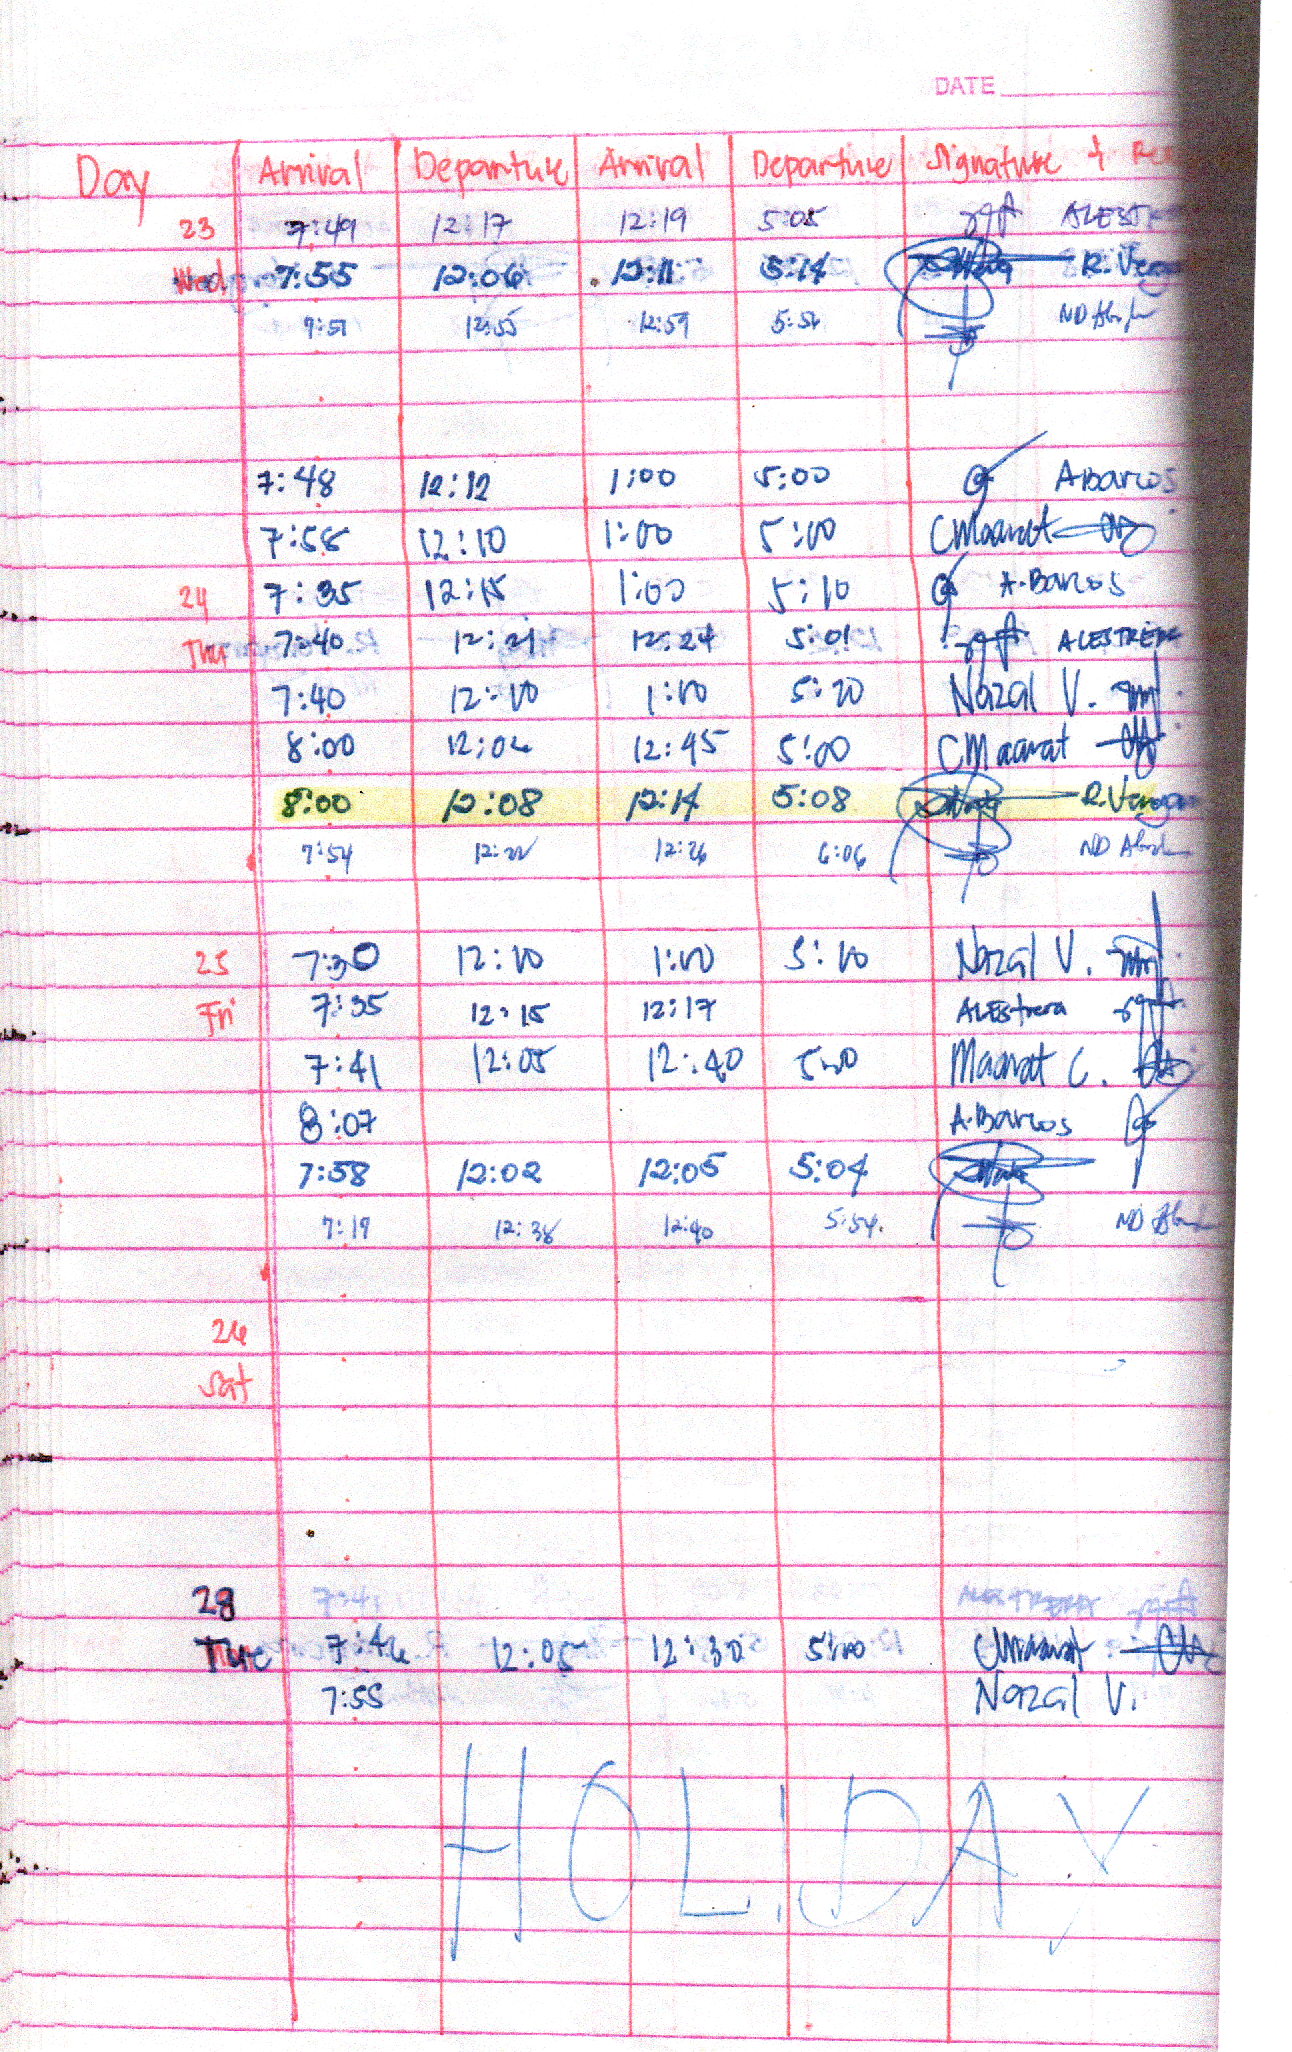 DATE
Day Arrival Departure Arrival Departure Signature +
23 7:49 12:17 12:19 5:05
Wed 7:55 12:06 12:11 5:14 R.
7:51 12:55 12:59 ND
7:48 12:12 1:00 5:00 A Barcos
7:58 12:10 1:00 5:00 CMaanat
24 7:35 12:15 1:00 5:10 A.Barcos
Thu 7:40 12:21 12:24 5:01 ALESTRERA
7:40 12:10 1:10 5:20 Nazal V.
8:00 12:04 12:45 5:00 CMaanat
8:00 12:08 12:14 5:08 R.
7:54 12:22 12:26 6:06 ND
25 7:30 12:10 1:10 5:10 Nazal V.
Fri 7:35 12:15 12:17 ALEstrera
7:41 12:05 12:40 5:00 Maanat C.
8:07 A.Barcos
7:58 12:02 12:05 5:04
7:19 12:38 12:40 5:54. ND
26
Sat
28 7:41 ALESTRERA
Tue 7:46 12:05 12:30 5:00 CMaanat
7:55 Nazal V.
HOLIDAY